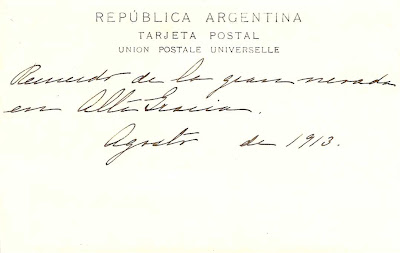 REPÚBLICA ARGENTINA
TARJETA POSTAL
UNION POSTALE UNIVERSELLE
Recuerdo de la gran nevada
en Alta Gracia.
Agosto de 1913.